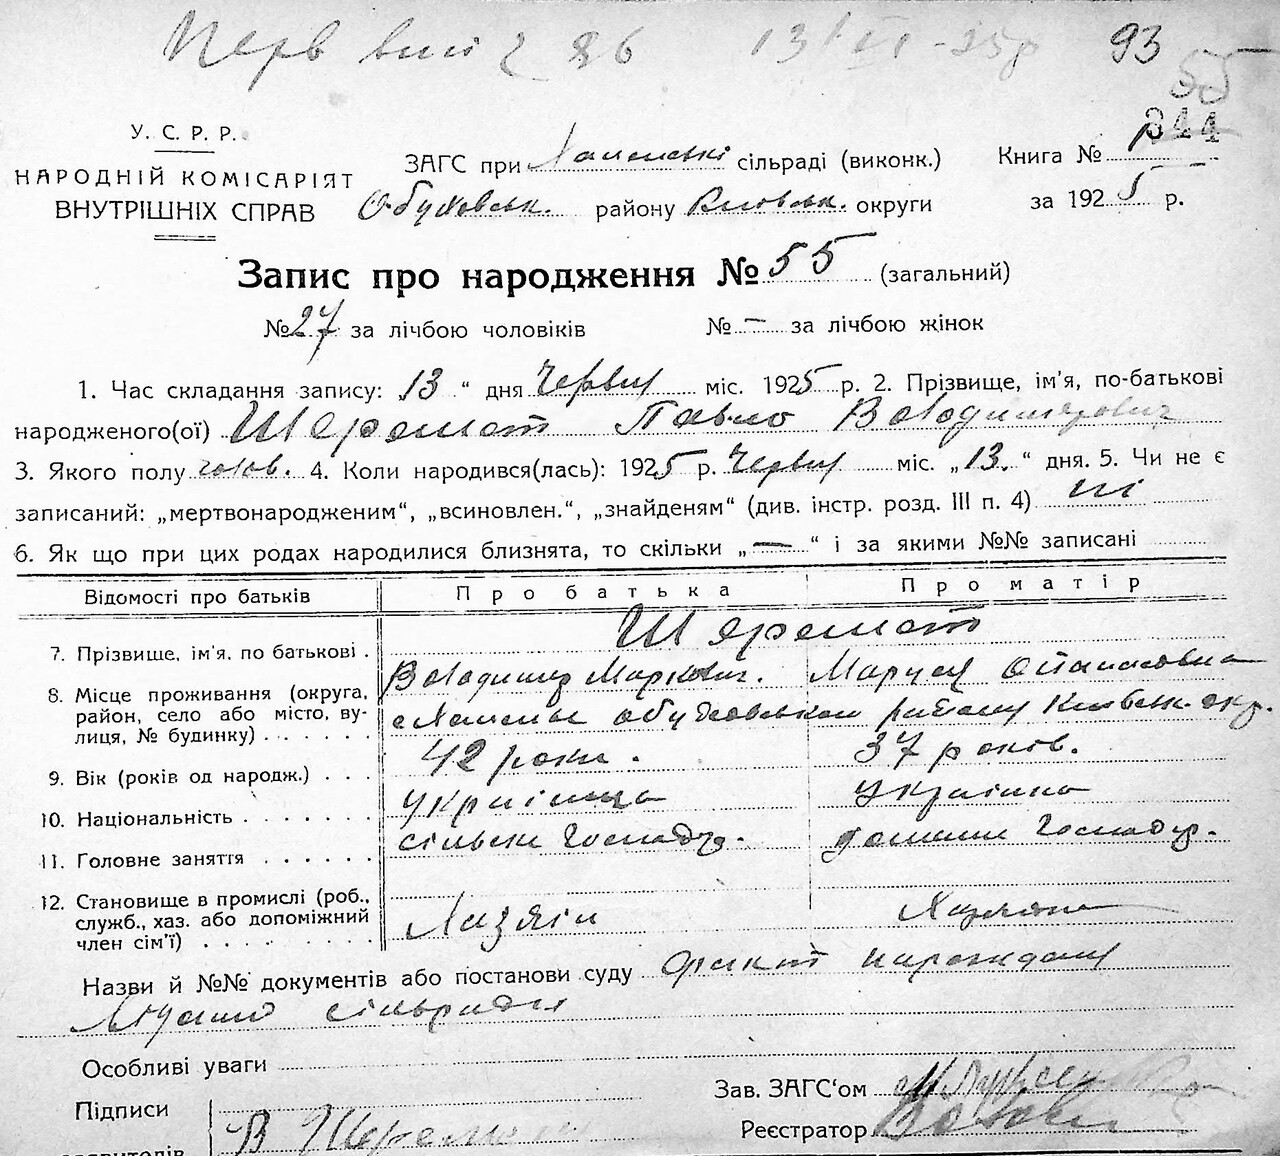 93
55
344
У. С. Р. Р.
НАРОДНІЙ КОМІСАРІЯТ
ВНУТРІШНІХ СПРАВ
ЗАГС при сільраді (виконк.)
Обуховськ. району Київськ. округи
Книга №
за 1925 р.
Запис про народження № 55 (загальний)
№ 27 за лічбою чоловіків № — за лічбою жінок
1. Час складання запису: 13 “ дня Червня міс. 1925 р. 2. Прізвище, ім’я, по-батькові
народженого(ої) Шеремет Павло Володимерович
3. Якого полу чолов. 4. Коли народився(лась): 1925 р. Червня міс. „13.“ дня. 5. Чи не є
записаний: „мертвонародженим“, „всиновлен.“, „знайденям“ (див. інстр. розд. III п. 4) ні
6. Як що при цих родах народилися близнята, то скільки „—“ і за якими №№ записані
Відомості про батьків Про батька Про матір
7. Прізвище, ім’я, по батькові . Шеремет
Володимир Маркович. Маруся Опанасовна
8. Місце проживання (округа, район, село або місто, вулиця, № будинку) Обуховського району Київськ. окр.
9. Вік (років од народж.) . . . 42 роки. 37 років.
10. Національність . . . . . . . Українець Українка
11. Головне заняття . . . . . . сільськ господ. домашн господар.
12. Становище в промислі (роб., служб., хаз. або допоміжний член сім’ї) . . . . . . . . Хазяїн Хазяйка
Назви й №№ документів або постанови суду
сільради
Особливі уваги
Зав. ЗАГС‘ом
Підписи
Реєстратор
В Шеремет